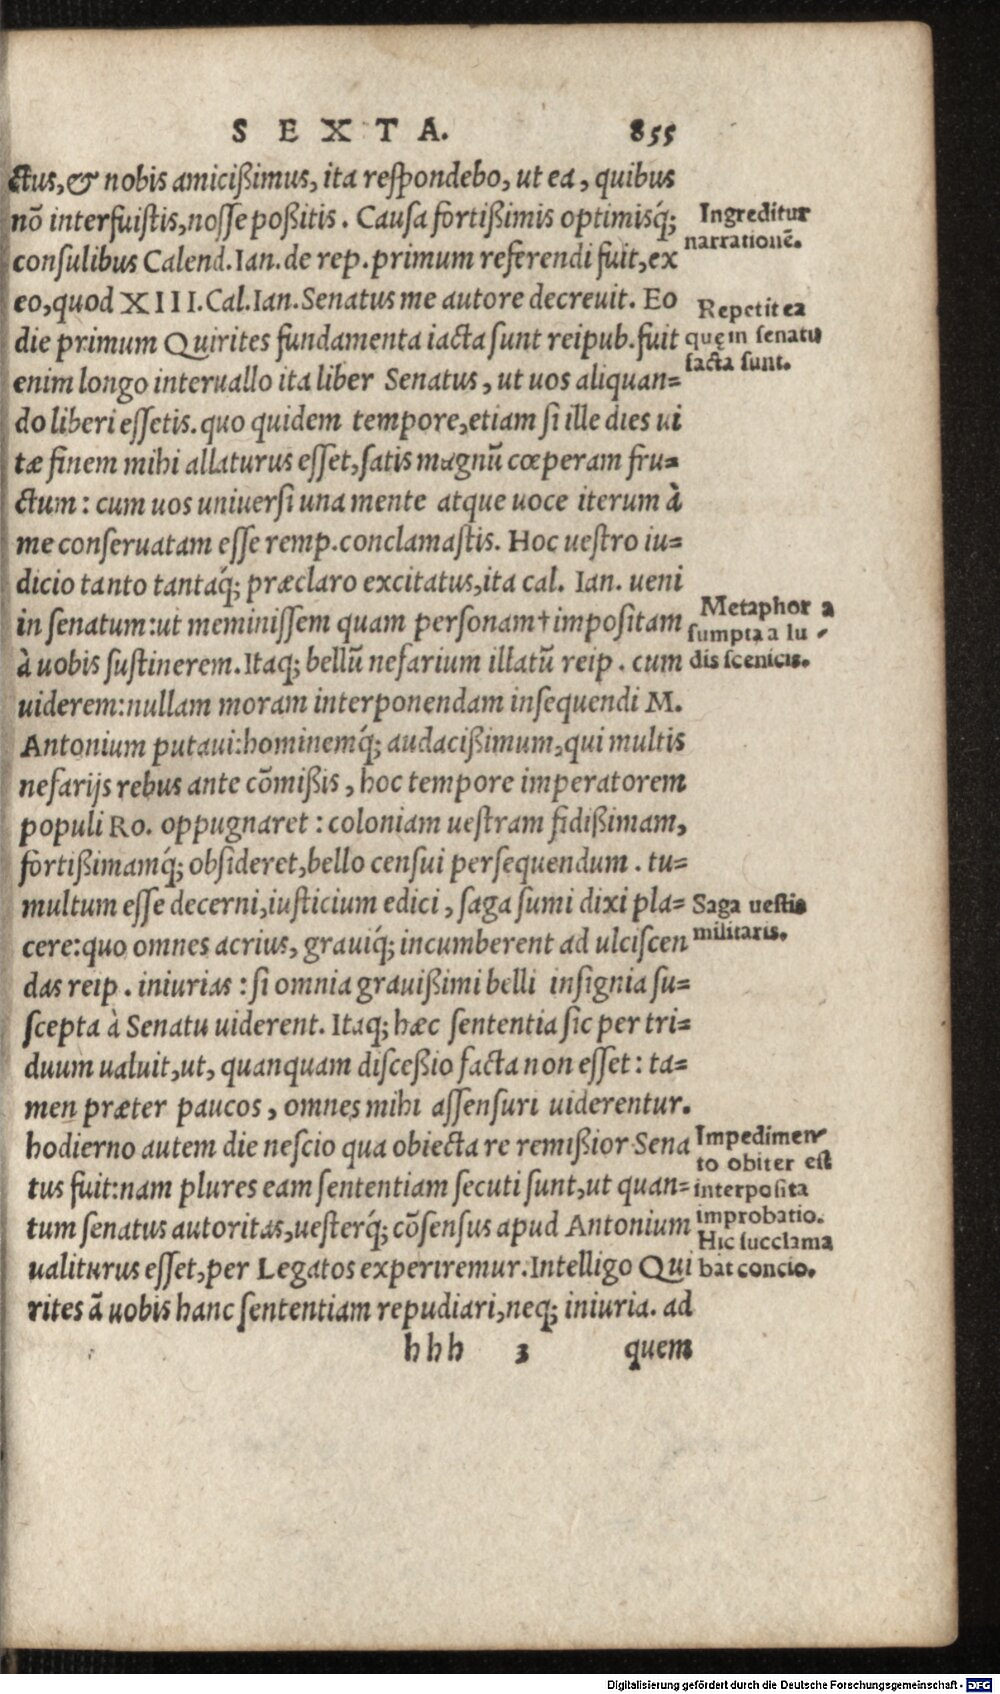 SEXTA. 855
ctus, & nobis amicißimus, ita respondebo, ut ea, quibus
nō interfuistis, nosse poßitis. Causa fortißimis optimisq́;
consulibus Calend. Ian. de rep. primum referendi fuit, ex
eo, quod XIII. Cal. Ian. Senatus me autore decrevit. Eo
die primum Quirites fundamenta iacta sunt reipub. fuit
enim longo intervallo ita liber Senatus, ut uos aliquan=
do liberi essetis. quo quidem tempore, etiam si ille dies ui
tæ finem mihi allaturus esset, satis magnū cœperam fru=
ctum: cum uos universi una mente atque uoce iterum à
me conservatam esse remp. conclamastis. Hoc uestro iu=
dicio tanto tantaq́; præclaro excitatus, ita cal. Ian. ueni
in senatum: ut meminissem quam personam † impositam
à uobis sustinerem. Itaq; bellū nefarium illatū reip. cum
uiderem: nullam moram interponendam insequendi M.
Antonium putaui: hominemq́; audacißimum, qui multis
nefarijs rebus ante cōmißis, hoc tempore imperatorem
populi Ro. oppugnaret: coloniam uestram fidißimam,
fortißimamq́; obsideret, bello censui persequendum. tu=
multum esse decerni, iusticium edici, saga sumi dixi pla=
cere: quo omnes acrius, grauiq́; incumberent ad ulciscen
das reip. iniurias: si omnia grauißimi belli insignia su=
scepta à Senatu uiderent. Itaq; hæc sententia sic per tri=
duum ualuit, ut, quanquam disceßio facta non esset: ta=
men præter paucos, omnes mihi assensuri uiderentur.
hodierno autem die nescio qua obiecta re remißior Sena
tus fuit: nam plures eam sententiam secuti sunt, ut quan=
tum senatus autoritas, uesterq́; cōsensus apud Antonium
ualiturus esset, per Legatos experiremur. Intelligo Qui
rites ā uobis hanc sententiam repudiari, neq; iniuria. ad
hhh 3 quem
Ingreditur
narrationē.
Repetit ea
quę in senatu
facta sunt.
Metaphora
sumpta a lu-
dis scenicis.
Saga uestis
militaris.
Impedimen-
to obiter est
interposita
improbatio.
Hic succlama
bat concio.
Digitalisierung gefördert durch die Deutsche Forschungsgemeinschaft - DFG